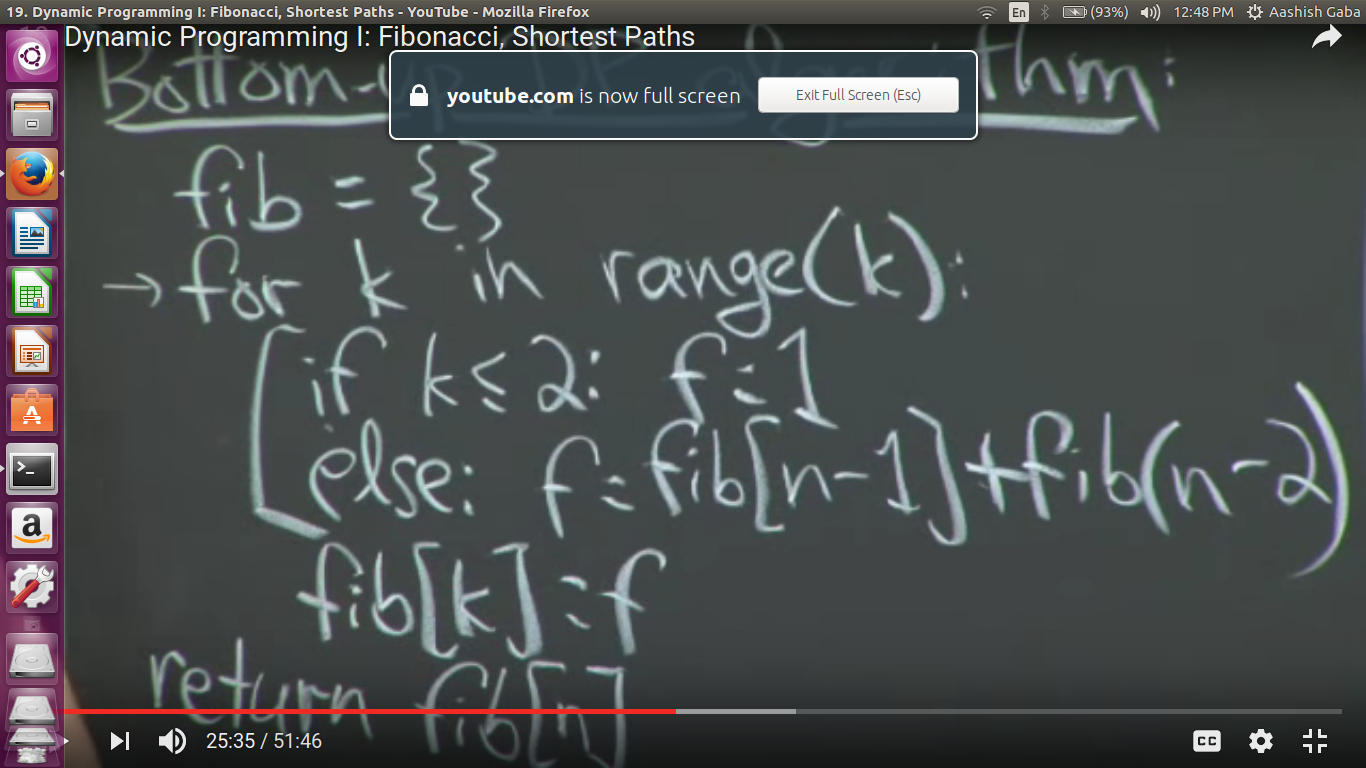 19. Dynamic Programming I: Fibonacci, Shortest Paths - YouTube - Mozilla Firefox
En
(93%)
12:48 PM
Aashish Gaba
Dynamic Programming I: Fibonacci, Shortest Paths
youtube.com is now full screen
Exit Full Screen (Esc)
Bottom-up DP algorithm:
fib = {}
→ for k in range(k):
if k ≤ 2: f = 1
else: f = fib[n-1] + fib(n-2)
fib[k] = f
return fib[n]
25:35 / 51:46
CC